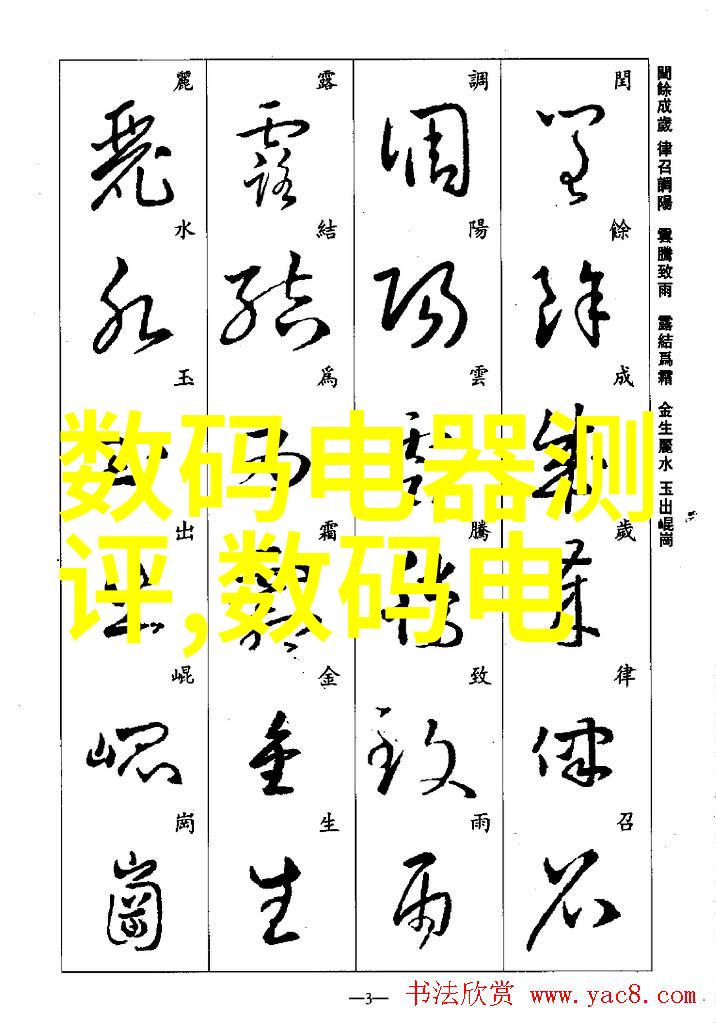 閏餘成歲 律召調陽 雲騰致雨 露結爲霜 金生麗水 玉出崐崗
閏
餘
成
歲
律
召
調
陽
雲
騰
致
雨
露
結
爲
霜
金
生
麗
水
玉
出
崐
崗
数码电器测
评,数码电
—3—
书法欣赏 www.yac8.com